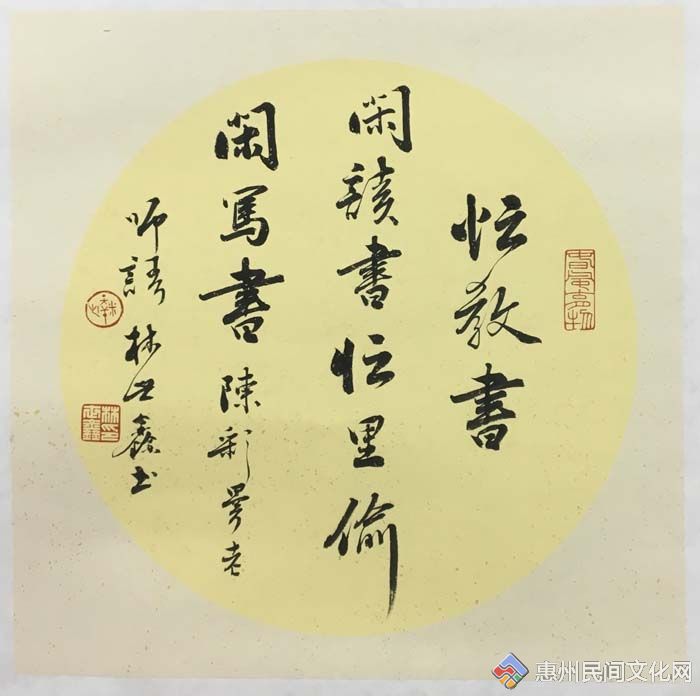 忙教書
閑讀書忙里偷
閑寫書 陳彩琴老
師語 林世鑫書
惠州民间文化网